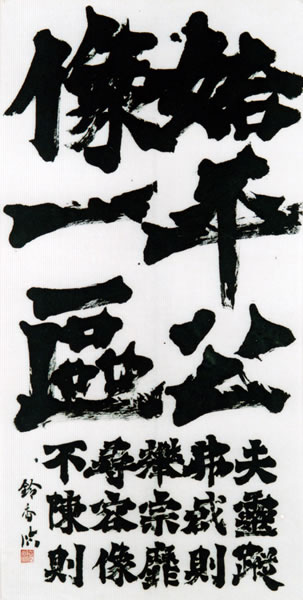 始平公
像一區
夫靈蹤
弗則
攀宗靡
尋容像
不陳則
鈴香臨